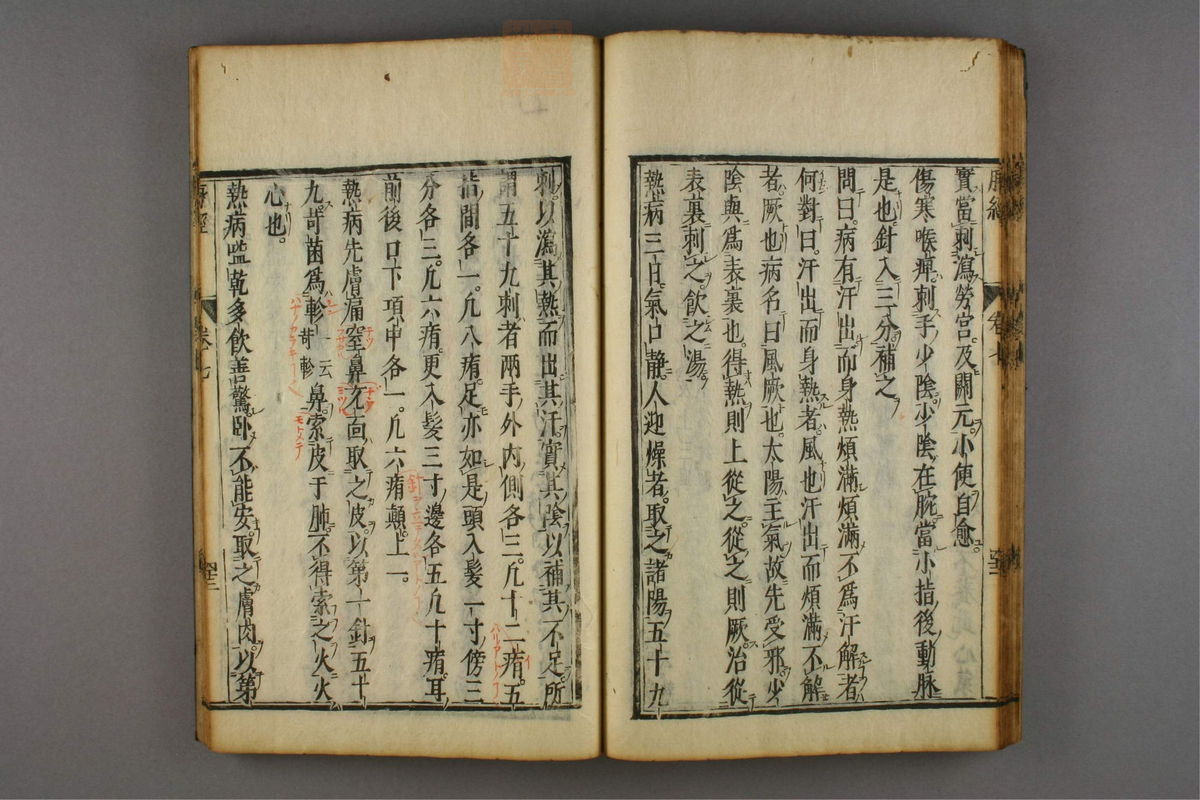 實當刺瀉勞宮及關元小便自愈
傷寒喉痺刺手少陰少陰在腕當小指後動脉
是也針入三分補之
問曰病有汗出而身熱煩滿煩滿不爲汗解者
何對曰汗出而身熱者風也汗出而煩滿不解
者厥也病名曰風厥也太陽主氣故先受邪少
陰與爲表裏也得熱則上從之從之則厥治從
表裏刺之飲之湯
熱病三日氣口靜人迎燥者取之諸陽五十九
刺以瀉其熱而出其汗實其陰以補其不足所
謂五十九刺者兩手外内側各三凡十二痏五
指間各一凡八痏足亦如是頭入髮一寸傍三
分各三凡六痏更入髮三寸邊各五凡十痏耳
前後口下項中各一凡六痏顛上一
熱病先膚痛窒鼻充面取之皮以第一針五十
九苛菌爲軫一云苛軫鼻索皮于肺不得索之火火
心也
熱病嗌乾多飲善驚卧不能安取之膚肉以第
脉經
卷七